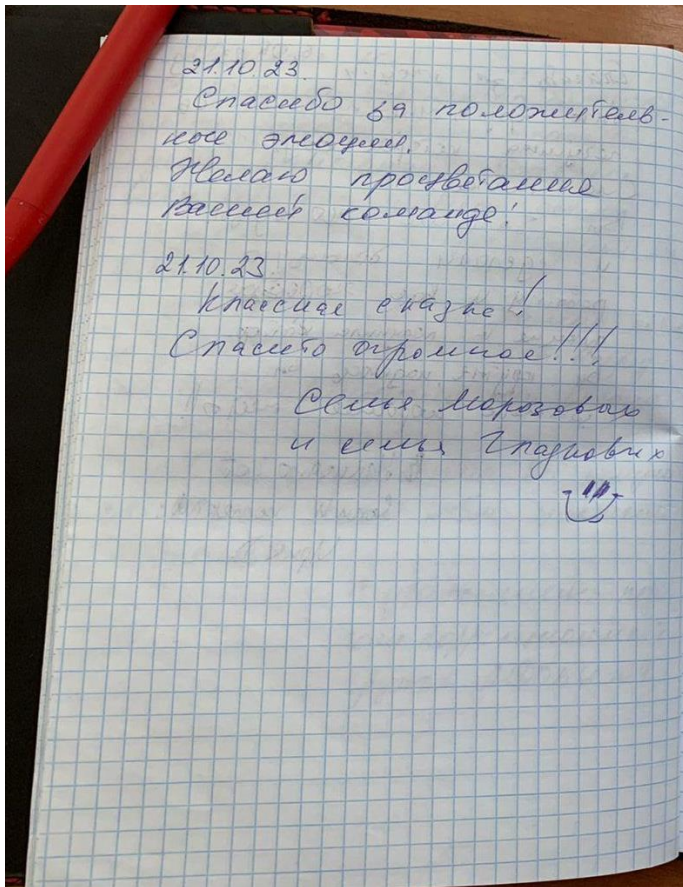 21.10.23.
Спасибо за положитель-
ные эмоции.
Желаю процветания
Вашей команде!
21.10.23
Классная сказка!
Спасибо огромное!!!
Семья Морозовых
и семья Гладковых